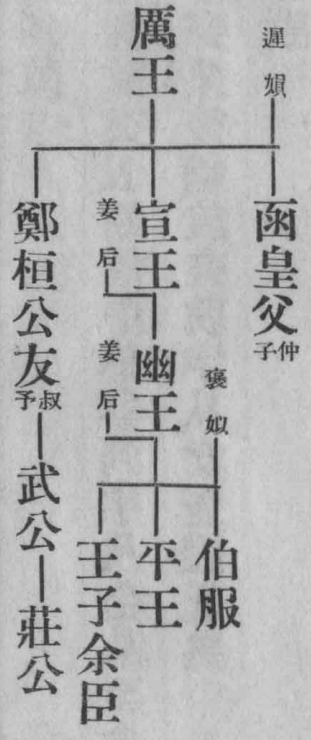 遲
圅皇父
仲子
厲王
宣王
姜后
幽王
姜后
褒姒
伯服
平王
王子余臣
鄭桓公友
叔予
武公
莊公